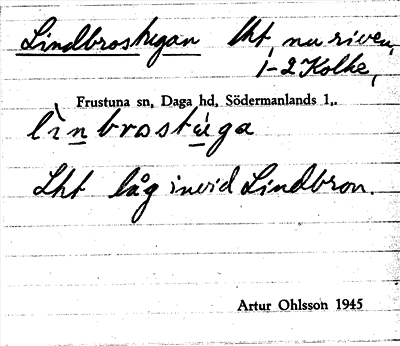 Lindbrostugan lht, nu riven,
1-2 Kolke,
Frustuna sn, Daga hd, Södermanlands l,.
lìnbrostúga
Lht låg invid Lindbron.
Artur Ohlsson 1945